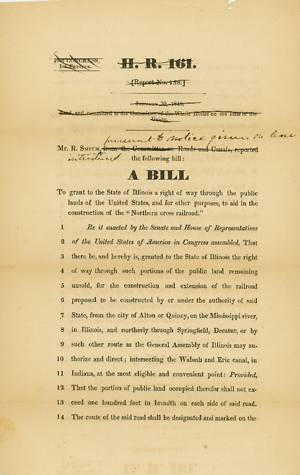 H. R. 161.
[Report No. 158.]
Read, and committed to the Committee of the Whole House on the state of the
Union.
pursuant to notice given on leave
Mr. R. Smith, from the Committee on Roads and Canals, reported
introduced the following bill:
A BILL
To grant to the State of Illinois a right of way through the public
lands of the United States, and for other purposes, to aid in the
construction of the "Northern cross railroad."
1 Be it enacted by the Senate and House of Representatives
2 of the United States of America in Congress assembled, That
3 there be, and hereby is, granted to the State of Illinois the right
4 of way through such portions of the public land remaining
5 unsold, for the construction and extension of the railroad
6 proposed to be constructed by or under the authority of said
7 State, from the city of Alton or Quincy, on the Mississippi river,
8 in Illinois, and northerly through Springfield, Decatur, or by
9 such other route as the General Assembly of Illinois may au-
10 thorize and direct; intersecting the Wabash and Erie canal, in
11 Indiana, at the most eligible and convenient point: Provided,
12 That the portion of public land occupied therefor shall not ex-
13 ceed one hundred feet in breadth on each side of said road.
14 The route of the said road shall be designated and marked on the